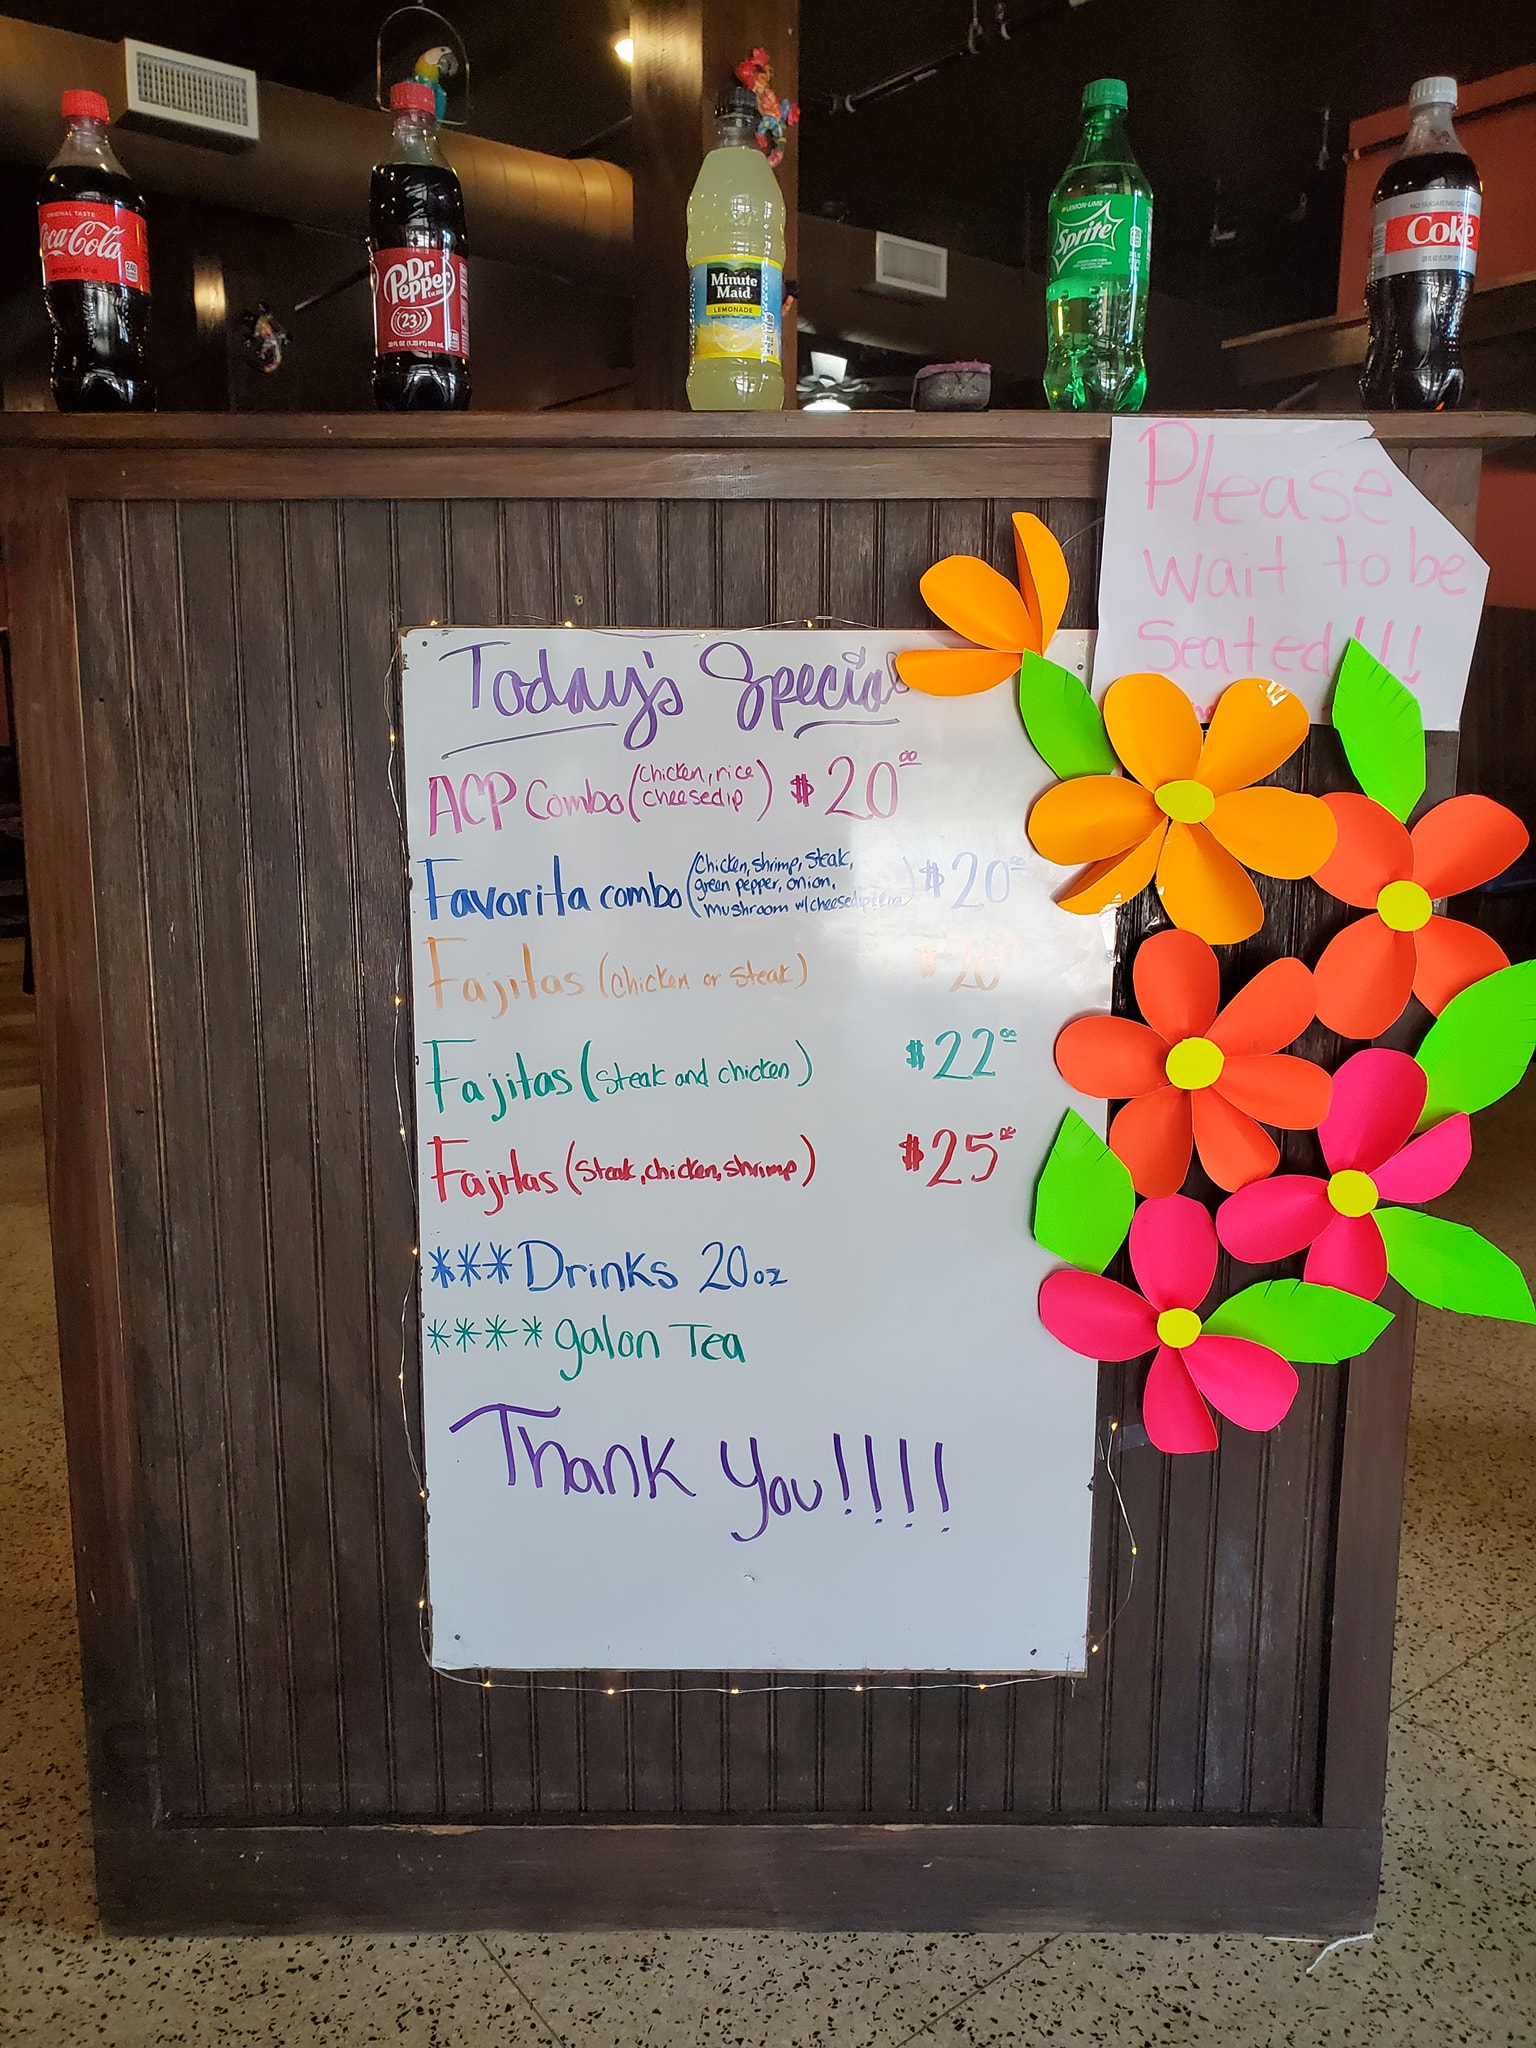 ORIGINAL TASTE
Coca-Cola
240
Dr
Pepper
23
20 FL OZ (1.25 PT) 591 mL
Minute
Maid
LEMONADE
LEMON-LIME
Sprite
Coke
Please
wait to be
Seated!!!
Today's Special
ACP Combo (chicken, rice
cheesedip) $20.00
Favorita combo (Chicken, shrimp, steak,
green pepper, onion,
mushroom w/cheesedip $20.00
Fajitas (chicken or steak) $20
Fajitas (steak and chicken) $22.00
Fajitas (steak, chicken, shrimp) $25.00
***Drinks 20oz
****galon Tea
Thank you!!!!